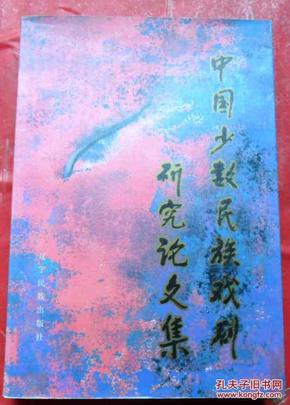 中国少数民族戏剧
研究论文集
辽宁民族出版社
孔夫子旧书网